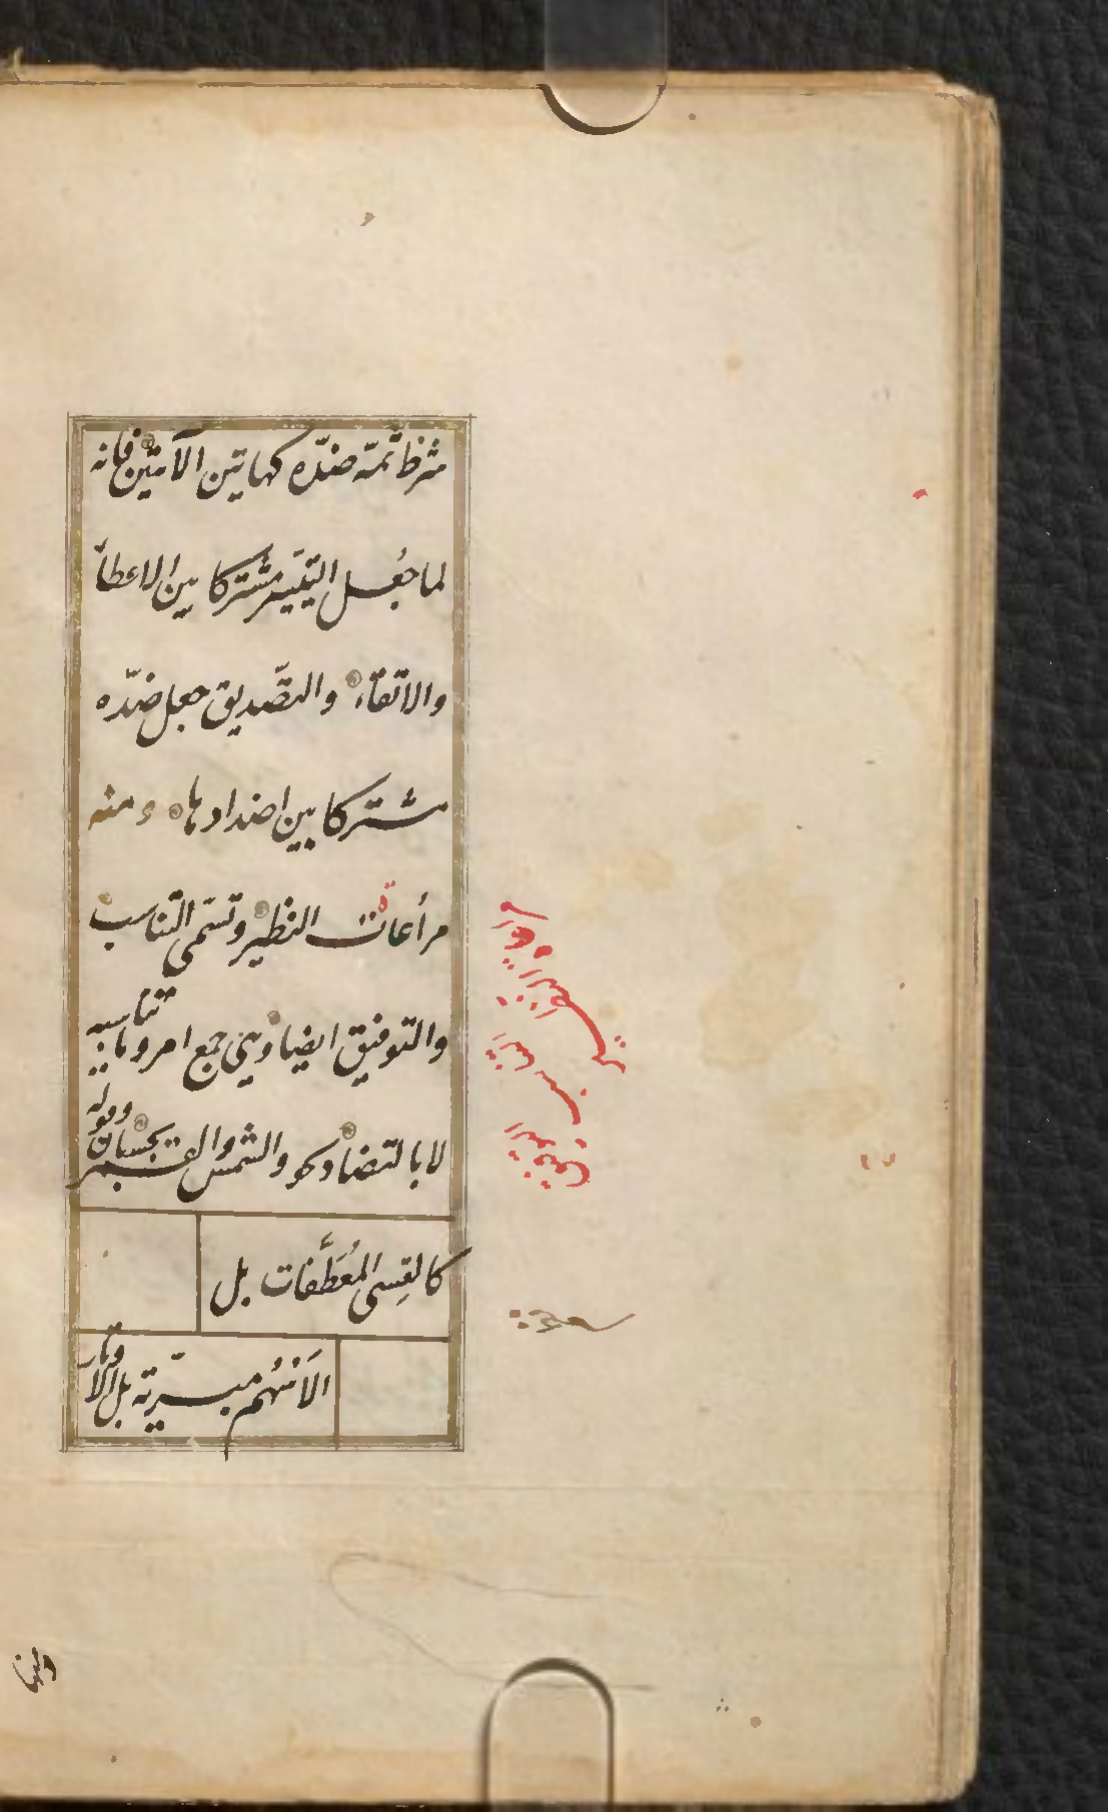 شرظ ثمّة ضدّه كهاتين الآيتين فانه
لما جُعل التيسير مشتركا بين الاعطآ
والاتقآء والتصّديق جعل ضدّه
مشتركا بين اضدادها ومنه
مرأعات النظير وتسمّى التناسب
والتوفيق ايضا وهي جمع امر وما يناسبه
لا بالتضاد نحو والشمس والقمر بحسبان وقوله
كالقِسي المُعَطَّفات بل
الاَسْهُم مبريّة بل الاوتار